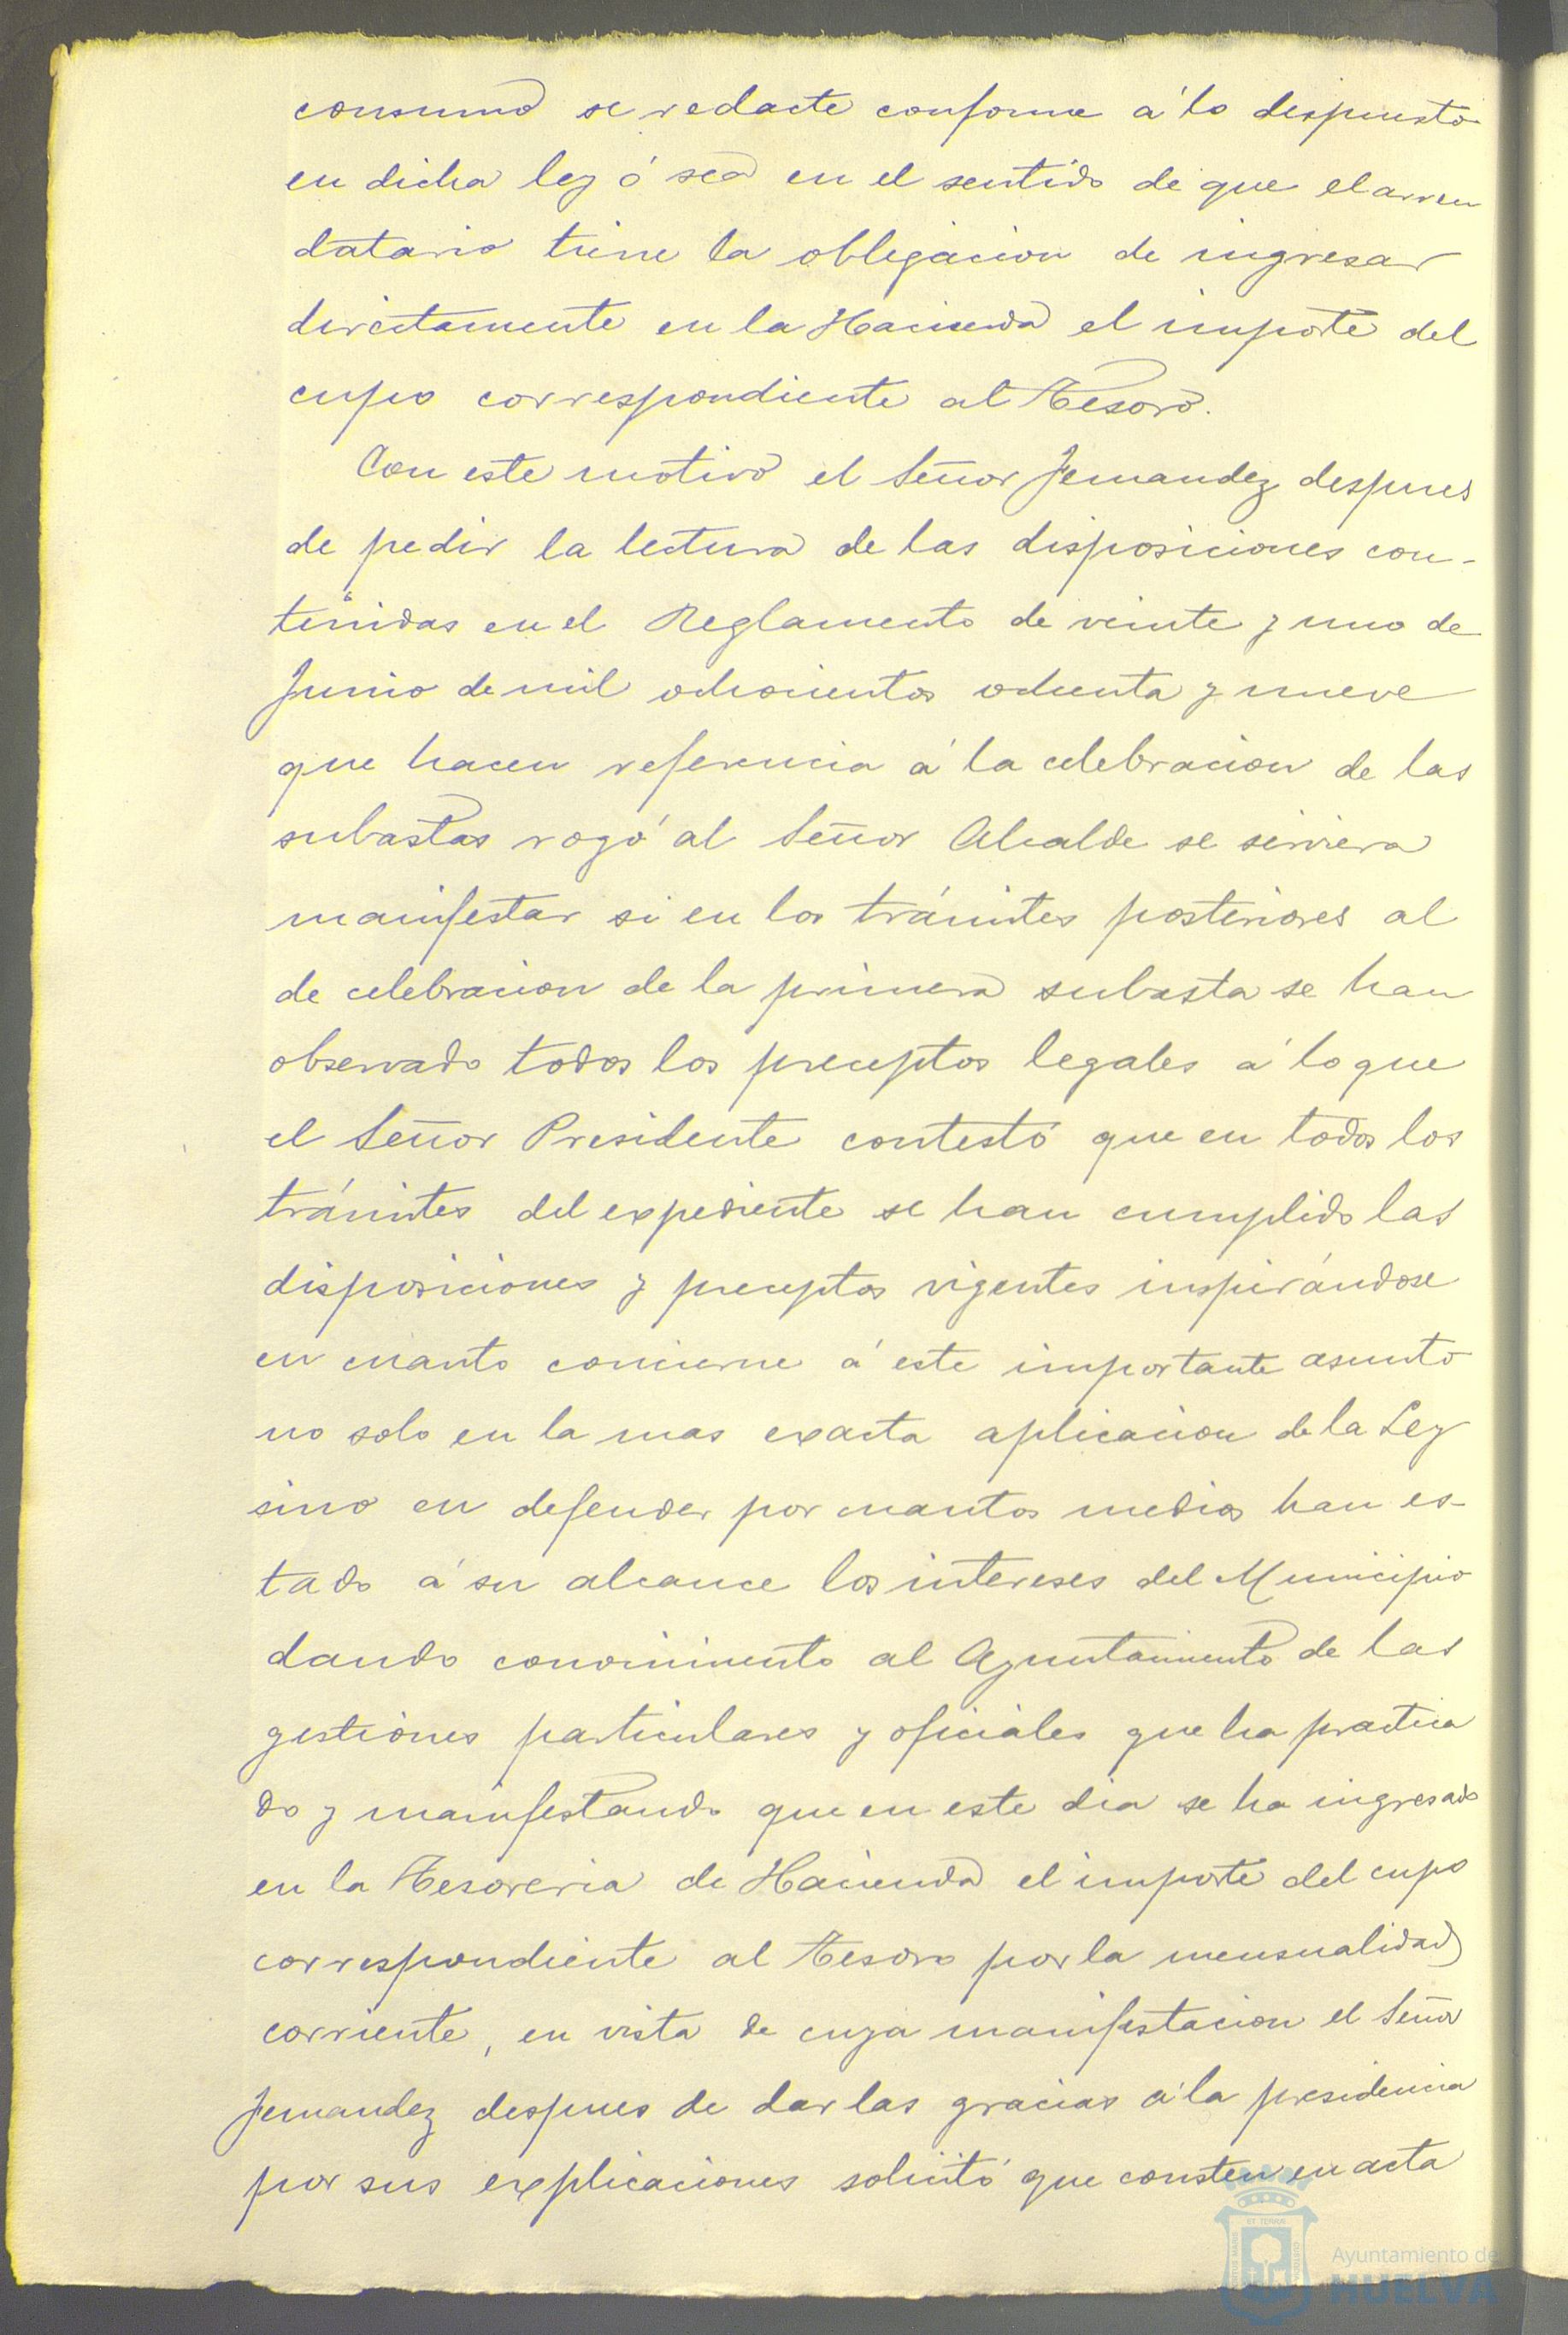 consumo se redacte conforme á lo dispuesto
en dicha ley ó sea en el sentido de que el arren
datario tiene la obligacion de ingresar
directamente en la Hacienda el importe del
cupo correspondiente al Tesoro.
Con este motivo el Señor Fernandez despues
de pedir la lectura de las disposiciones con-
tenidas en el Reglamento de veinte y uno de
Junio de mil ochocientos ochenta y nueve
que hacen referencia á la celebracion de las
subastas rogó al Señor Alcalde se sirviera
manifestar si en los trámites posteriores al
de celebracion de la primera subasta se han
observado todos los preceptos legales á lo que
el Señor Presidente contestó que en todos los
trámites del expediente se han cumplido las
disposiciones y preceptos vigentes inspirándose
en cuanto concierne á este importante asunto
no solo en la mas exacta aplicacion de la Ley
sino en defender por cuantos medios han es-
tado á su alcance los intereses del Municipio
dando conocimiento al Ayuntamiento de las
gestiones particulares y oficiales que ha practica
do y manifestando que en este dia se ha ingresado
en la Tesoreria de Hacienda el importe del cupo
correspondiente al Tesoro por la mensualidad
corriente, en vista de cuya manifestacion el Señor
Fernandez despues de dar las gracias á la presidencia
por sus explicaciones solicitó que consten en acta
Ayuntamiento de
HUELVA